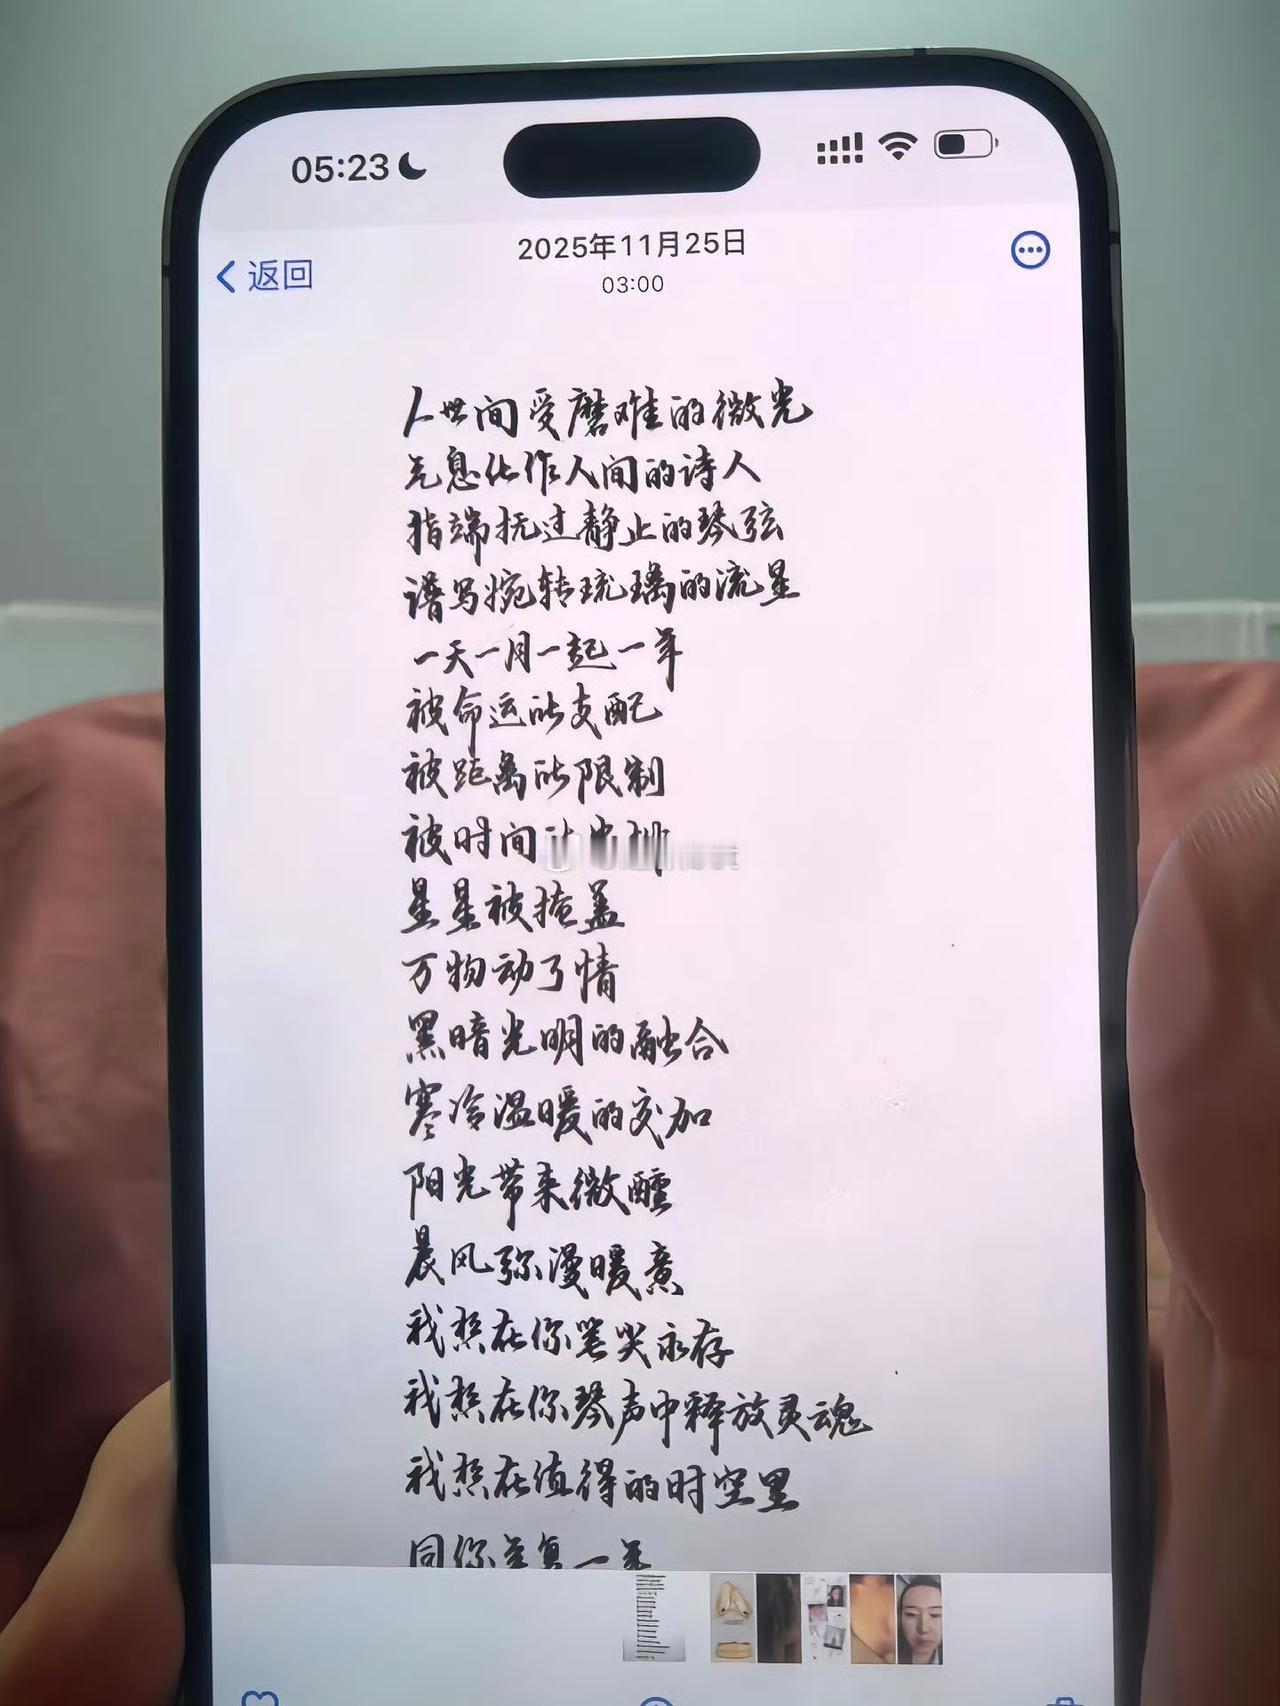 05:23
返回
2025年11月25日
03:00
人世间受磨难的微光
气息化作人间的诗人
指端抚过静止的琴弦
谱写婉转琉璃的流星
一天一月一起一年
被命运所支配
被距离所限制
被时间所
星星被掩盖
万物动了情
黑暗光明的融合
寒冷温暖的交加
阳光带来微醺
晨风弥漫暖意
我想在你笔尖永存
我想在你琴声中释放灵魂
我想在值得的时空里
同你 一年